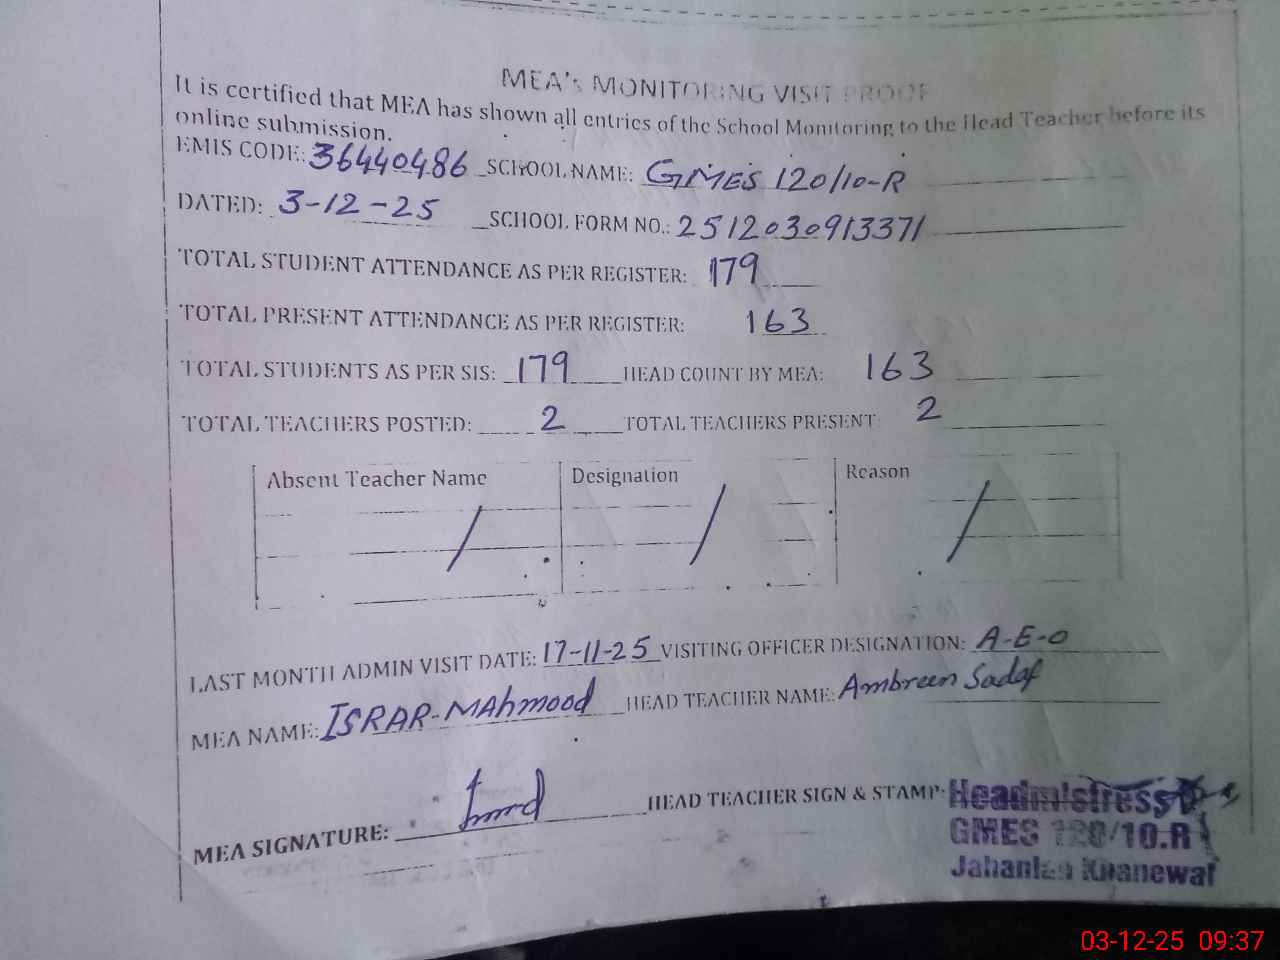 MEA's MONITORING VISIT PROOF
It is certified that MEA has shown all entries of the School Monitoring to the Head Teacher before its
online submission.
EMIS CODE: 36440486 SCHOOL NAME: GMES 120/10-R
DATED: 3-12-25 SCHOOL FORM NO.: 2512030913371
TOTAL STUDENT ATTENDANCE AS PER REGISTER: 179
TOTAL PRESENT ATTENDANCE AS PER REGISTER: 163
TOTAL STUDENTS AS PER SIS: 179 HEAD COUNT BY MEA: 163
TOTAL TEACHERS POSTED: 2 TOTAL TEACHERS PRESENT: 2
Absent Teacher Name Designation Reason
/ / /
LAST MONTH ADMIN VISIT DATE: 17-11-25 VISITING OFFICER DESIGNATION: A-E-O
MEA NAME: ISRAR-MAhmood HEAD TEACHER NAME: Ambreen Sadaf
MEA SIGNATURE: HEAD TEACHER SIGN & STAMP: Headmistress
GMES 120/10.R
Jahanian Khanewal
03-12-25 09:37